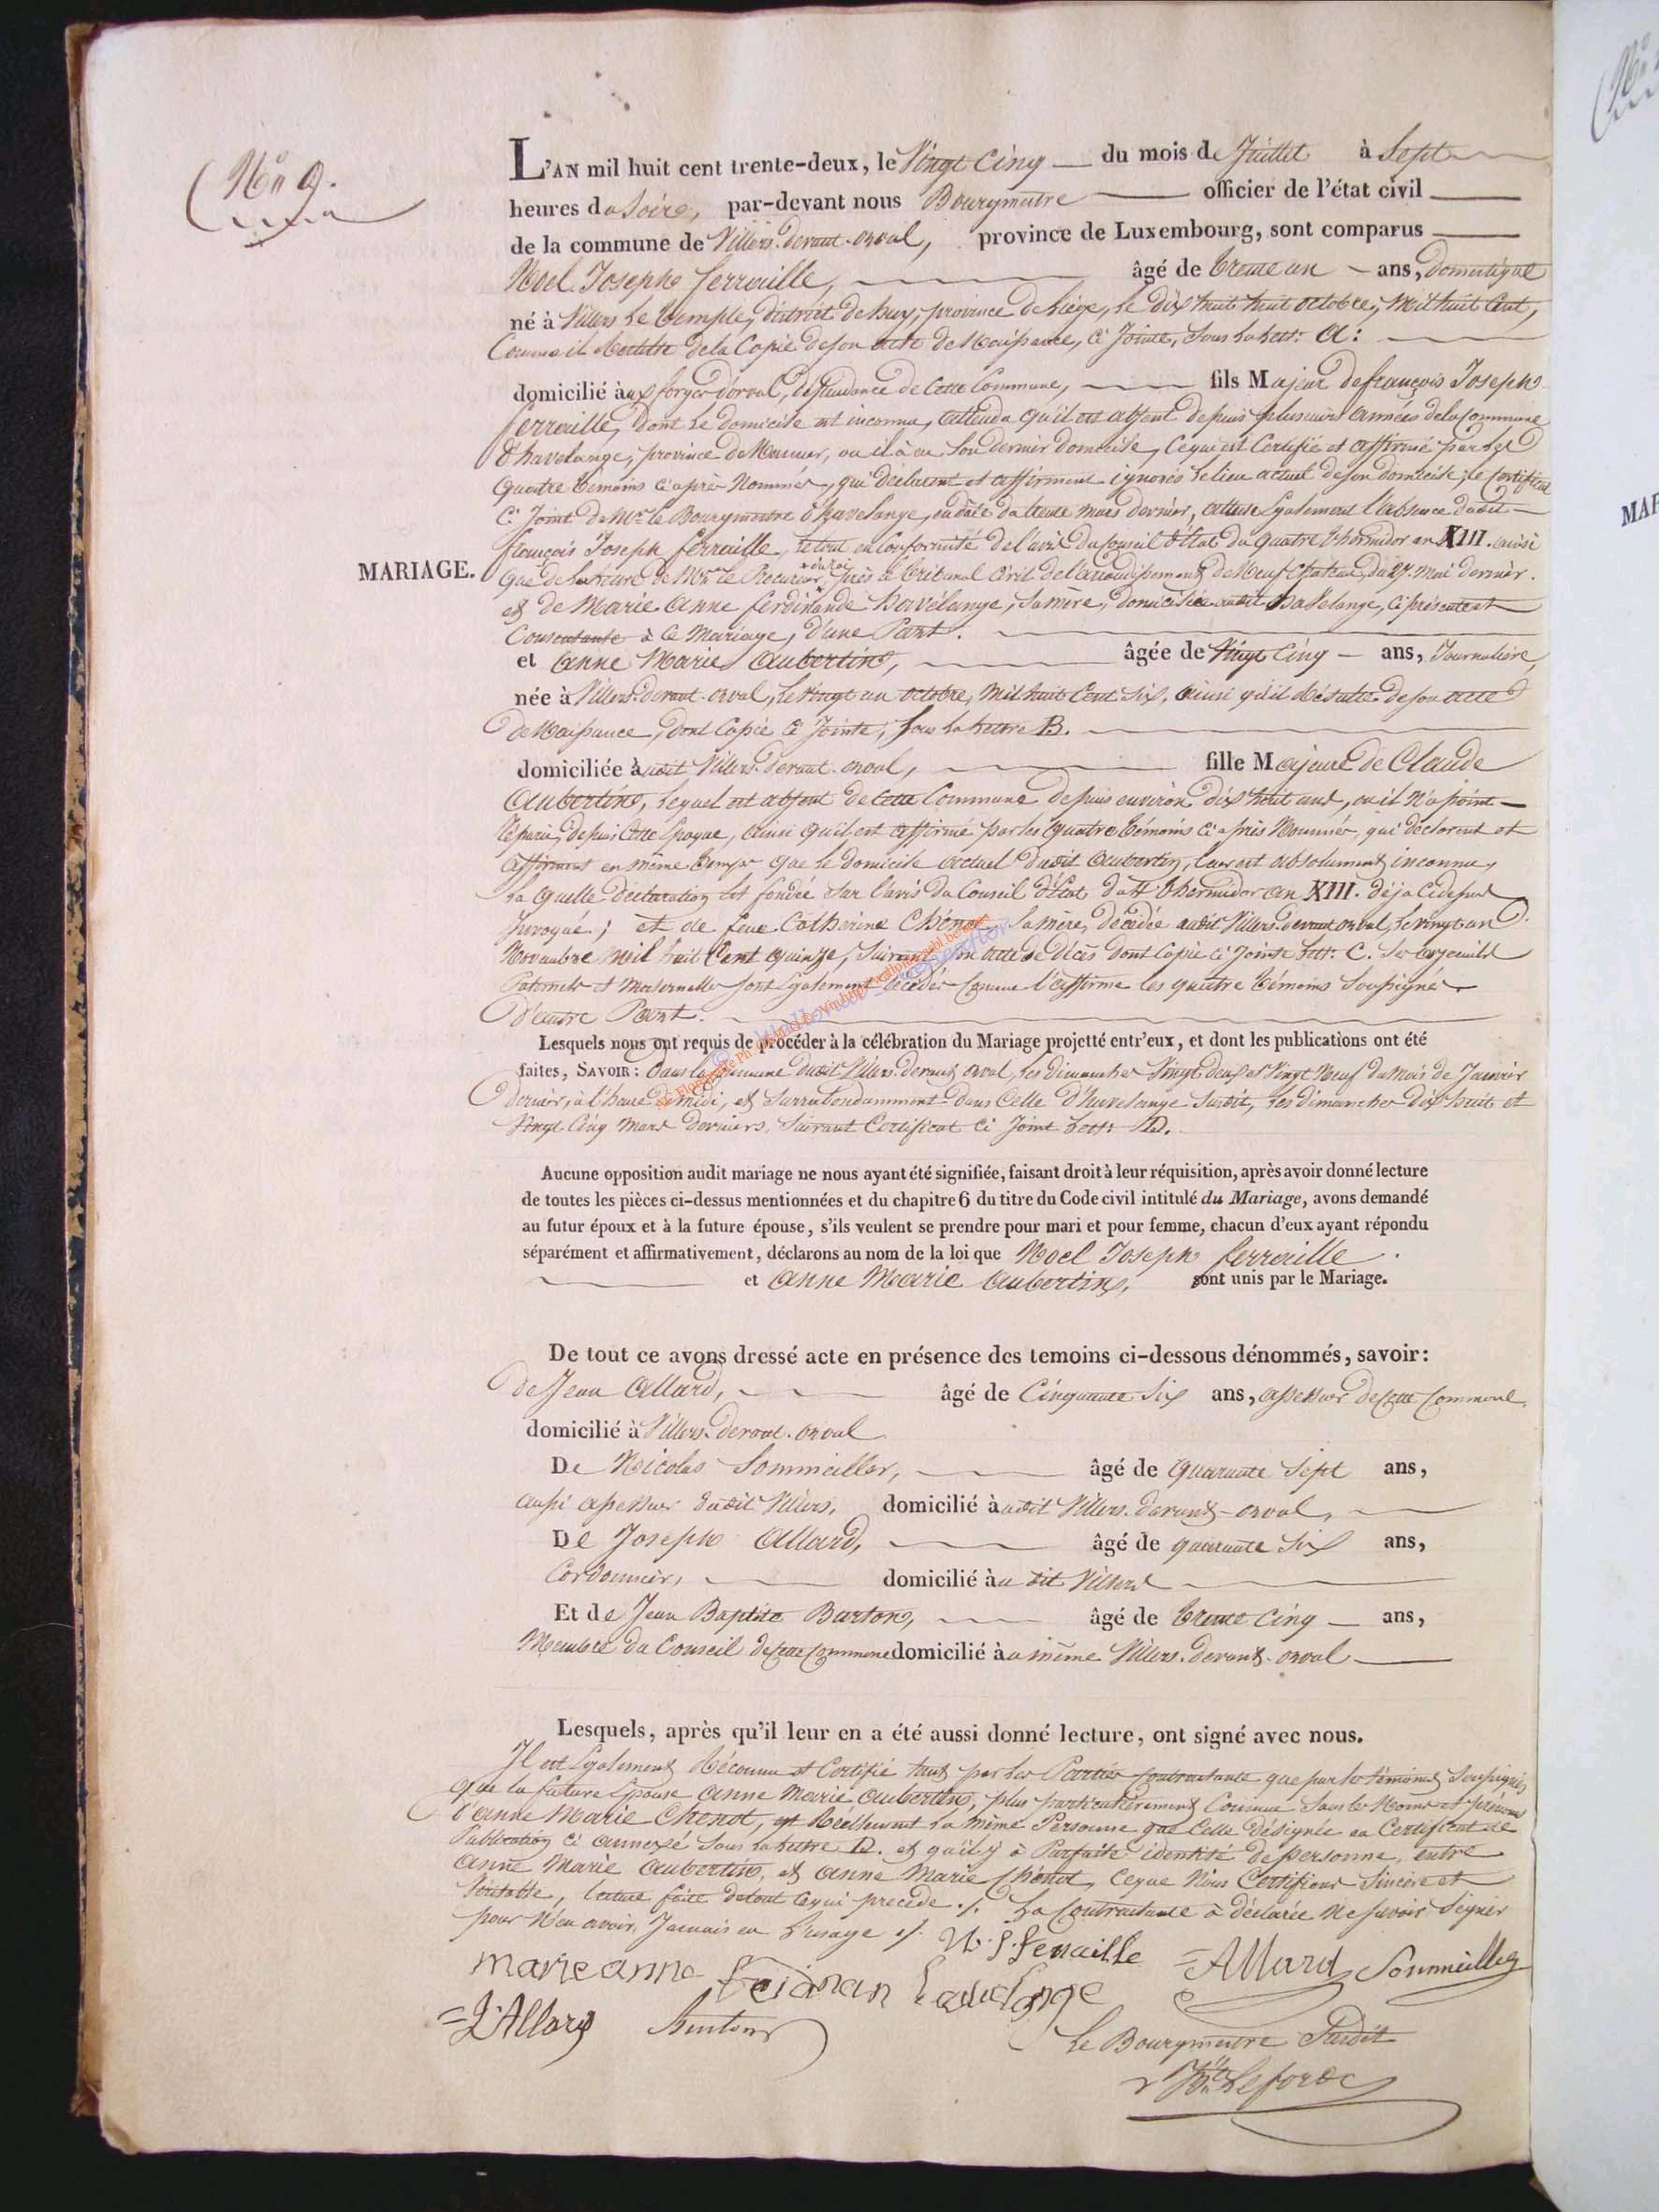 N° 9.
L'AN mil huit cent trente-deux, le Vingt Cinq du mois de Juillet à Sept
heures du Soire, par-devant nous Bourgmetre officier de l'état civil
de la commune de Villers-devant-orval, province de Luxembourg, sont comparus
Noel Joseph ferraille, âgé de trente un ans, domestique
né à Villers le temple, district de huy, province de Liège, le dix huit octobre, Mil huit Cent,
Comme il Résulte de la Copie de son acte de Naissance, Ci Jointe, Sous la Lett: A:
domicilié aux forges d'orval, dépendance de Cette Commune, fils Majeur de françois Joseph
ferraille, dont le domicile est inconnu, attendu qu'il est absent depuis plusieurs Années de la Commune
d'havelange, province de Namur, ou il à eu Son dernier domicile, Ce qui est Certifié et affirmé par les
Quatre témoins Ci après Nommés, qui déclarent et affirment ignorés le lieu actuel de son domicile; le Certificat
Ci Joint de Mr. le Bourgmestre d'havelange, en date du trente mars dernier, atteste Egalement l'absence dudit
françois Joseph ferraille, le tout en Conformité de l'avis du Conseil d'État du Quatre thermidor an XIII. ainsi
MARIAGE.
que de la lettre de Mr. le Procureur du roi près le tribunal Civil de l'arrondissement de Neufchateau, du 27. mai dernier.
et de Marie Anne ferdinande havélange, Sa mère, domiciliée audit havelange, Ci présente et
Consentante à Ce Mariage, d'une Part.
et Anne Marie Aubertin, âgée de Vingt Cinq ans, Journalière,
née à Villers-devant-orval, le vingt un octobre, Mil huit Cent Six, Ainsi qu'il Résulte de son acte
de Naissance, dont Copie Ci Jointe, Sous la lettre B.
domiciliée audit Villers-devant-orval, fille Majeure de Claude
Aubertin, lequel est absent de Cette Commune depuis environ dix huit ans, ou il n'a point
Reparu, depuis Cette Epoque, Ainsi qu'il est affirmé par les Quatre témoins Ci après Nommés, qui déclarent et
affirment en même temps que le domicile actuel dudit Aubertin, leur est absolument inconnu,
La quelle déclaration est fondée Sur l'avis du Conseil d'État du 4 thermidor an XIII. déja Cidessus
Invoqué; et de feue Catherine Chénot, Sa mère, décédée audit Villers-devant orval, le vingt un
Novembre Mil huit Cent quinze, Suivant Son acte de décès dont Copie Ci Jointe Lett: C. Ses ayeuils
Paternels et Maternelles sont Egalement décédés Comme l'affirme les quatre témoins Soussignés
d'autre Part.
Lesquels nous ont requis de procéder à la célébration du Mariage projetté entr'eux, et dont les publications ont été
faites, SAVOIR: dans la Commune dudit Villers-devant orval, les dimanches Vingt deux et Vingt Neuf du Mois de Janvier
dernier, à l'heure de midi, et Surrabondamment dans Celle d'havelange Susdit, les dimanches dix huit et
Vingt Cinq Mars derniers, Suivant Certificat Ci Joint Lett: D.
Aucune opposition audit mariage ne nous ayant été signifiée, faisant droit à leur réquisition, après avoir donné lecture
de toutes les pièces ci-dessus mentionnées et du chapitre 6 du titre du Code civil intitulé du Mariage, avons demandé
au futur époux et à la future épouse, s'ils veulent se prendre pour mari et pour femme, chacun d'eux ayant répondu
séparément et affirmativement, déclarons au nom de la loi que Noel Joseph ferraille
et Anne Marie Aubertin, sont unis par le Mariage.
De tout ce avons dressé acte en présence des temoins ci-dessous dénommés, savoir:
de Jean Allard, âgé de Cinquante Six ans, assesseur de Cette Commune
domicilié à Villers-devant-orval
De Nicolas Sommeiller, âgé de Quarante Sept ans,
aussi assesseur dudit Villers, domicilié audit Villers-devant-orval,
De Joseph Allard, âgé de quarante Six ans,
Cordonnier, domicilié au dit Villers
Et de Jean Baptiste Burton, âgé de trente Cinq ans,
Membre du Conseil de Cette Commune domicilié au même Villers-devant-orval
Lesquels, après qu'il leur en a été aussi donné lecture, ont signé avec nous.
Il est Egalement Réconnu et Certifié tant par les Parties Contractante que par les témoins Soussignés
que la future Epouse Anne Marie Aubertin, plus particulièrement Connue Sous les Noms et prénoms
d'Anne Marie Chenot, est Réellement la même Personne que Celle désignée au Certificat de
Publication Ci annexé Sous la lettre D. et qu'il y à Parfaite identité de personne, entre
Anne Marie Aubertin, et Anne Marie Chénot, Ce que Nous Certifions Sincère et
Véritable, lecture faite de tout Ce qui precède ./. La Contractante à déclarée Ne Savoir Signer
pour N'en avoir Jamais eu L'usage ./. N. J. ferraille Allard Sommeiller
marie anne ferdinan havelange
J. Allard Burton
Le Bourgmestre Susdit